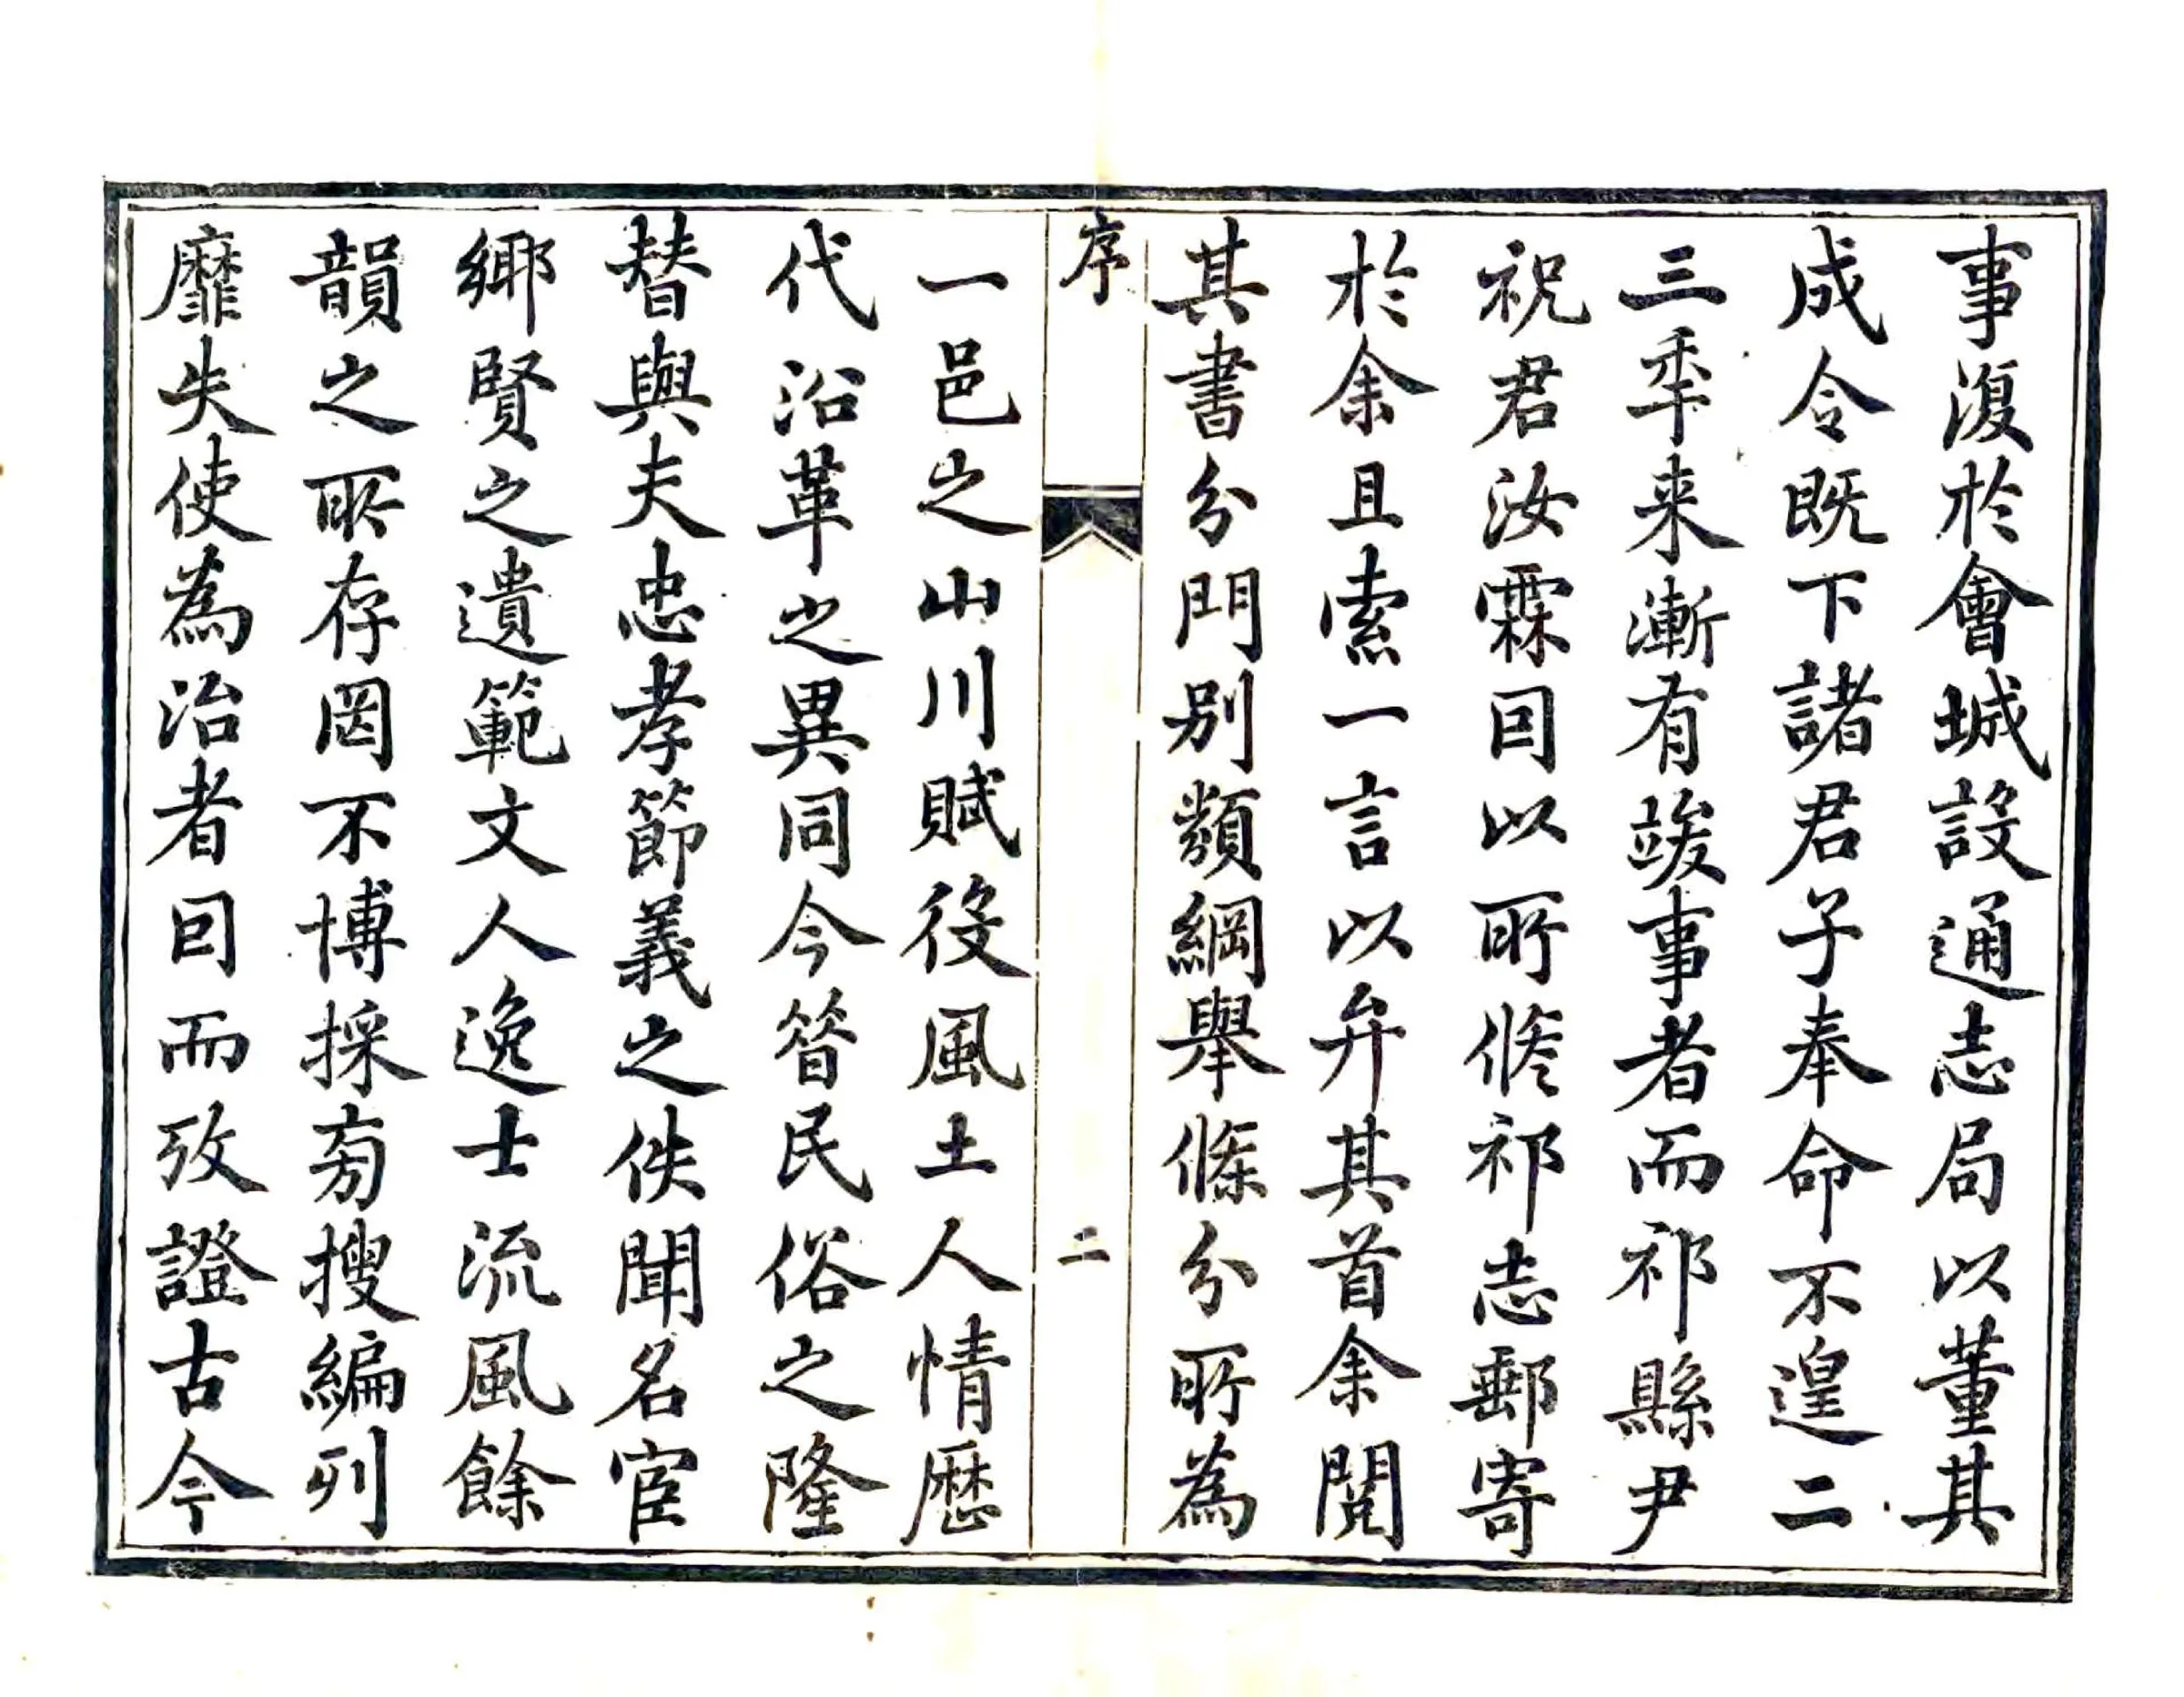 事復於會城設通志局以董其
成令既下諸君子奉命不遑二
三年来漸有竣事者而祁縣尹
祝君汝霖囙以所修祁志郵寄
於余且索一言以弁其首余閱
其書分門別類綱舉條分所為
序
二
一邑之山川賦役風土人情歷
代沿革之異同今昝民俗之隆
替與夫忠孝節義之佚聞名宦
鄉賢之遺範文人逸士流風餘
韻之所存罔不博採旁搜編列
靡失使為治者囙而攷證古今